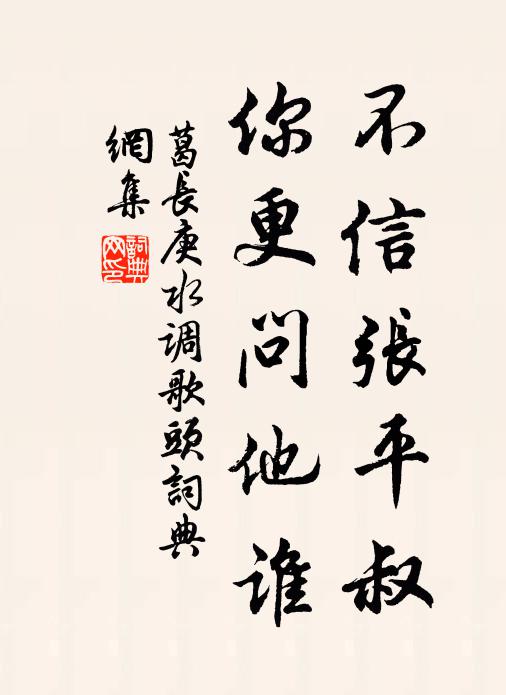 不信張平叔
你更問他誰
葛長庚水调歌頭詞典
網集
詞典
网印